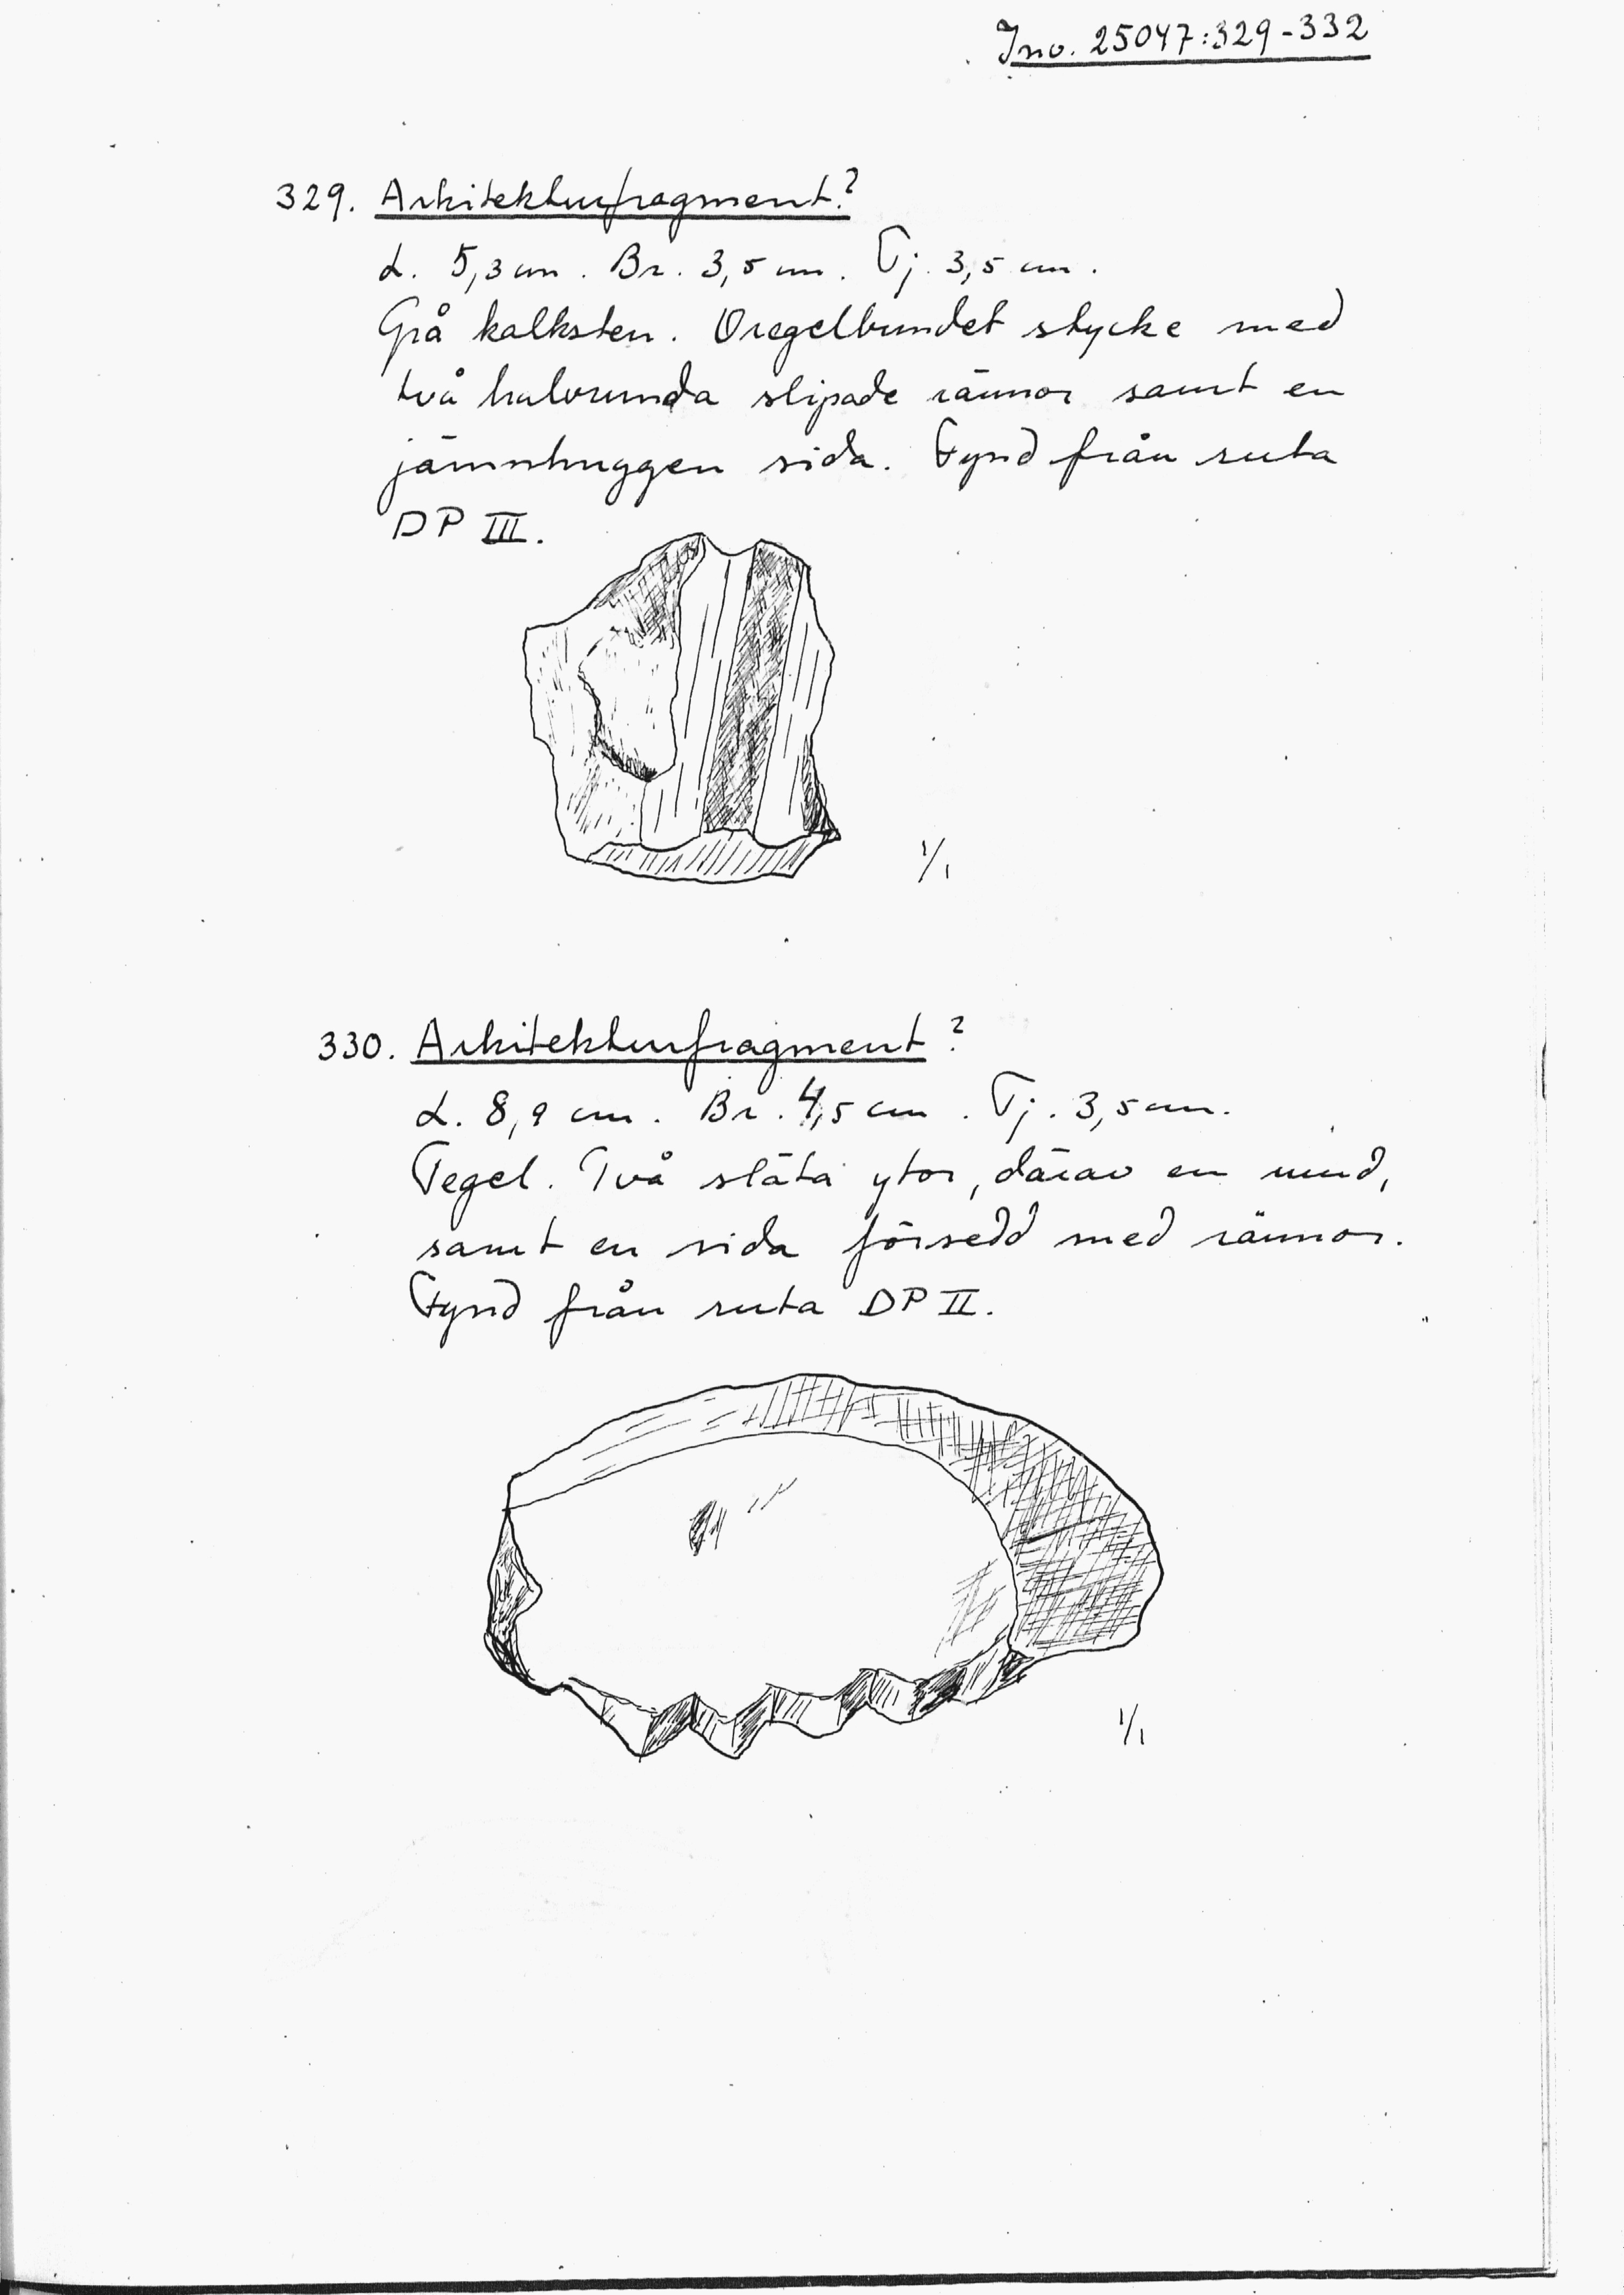 Inv. 25047:329-332
329. Arkitekturfragment?
L. 5,3 cm. Br. 3,5 cm. Tj. 3,5 cm.
Grå kalksten. Oregelbundet stycke med
två halvrunda slipade rännor samt en
jämnhuggen sida. Fynd från ruta
DP III.
1/1
330. Arkitekturfragment?
L. 8,9 cm. Br. 4,5 cm. Tj. 3,5 cm.
Tegel. Två släta ytor, därav en rund,
samt en sida försedd med rännor.
Fynd från ruta DP II.
1/1